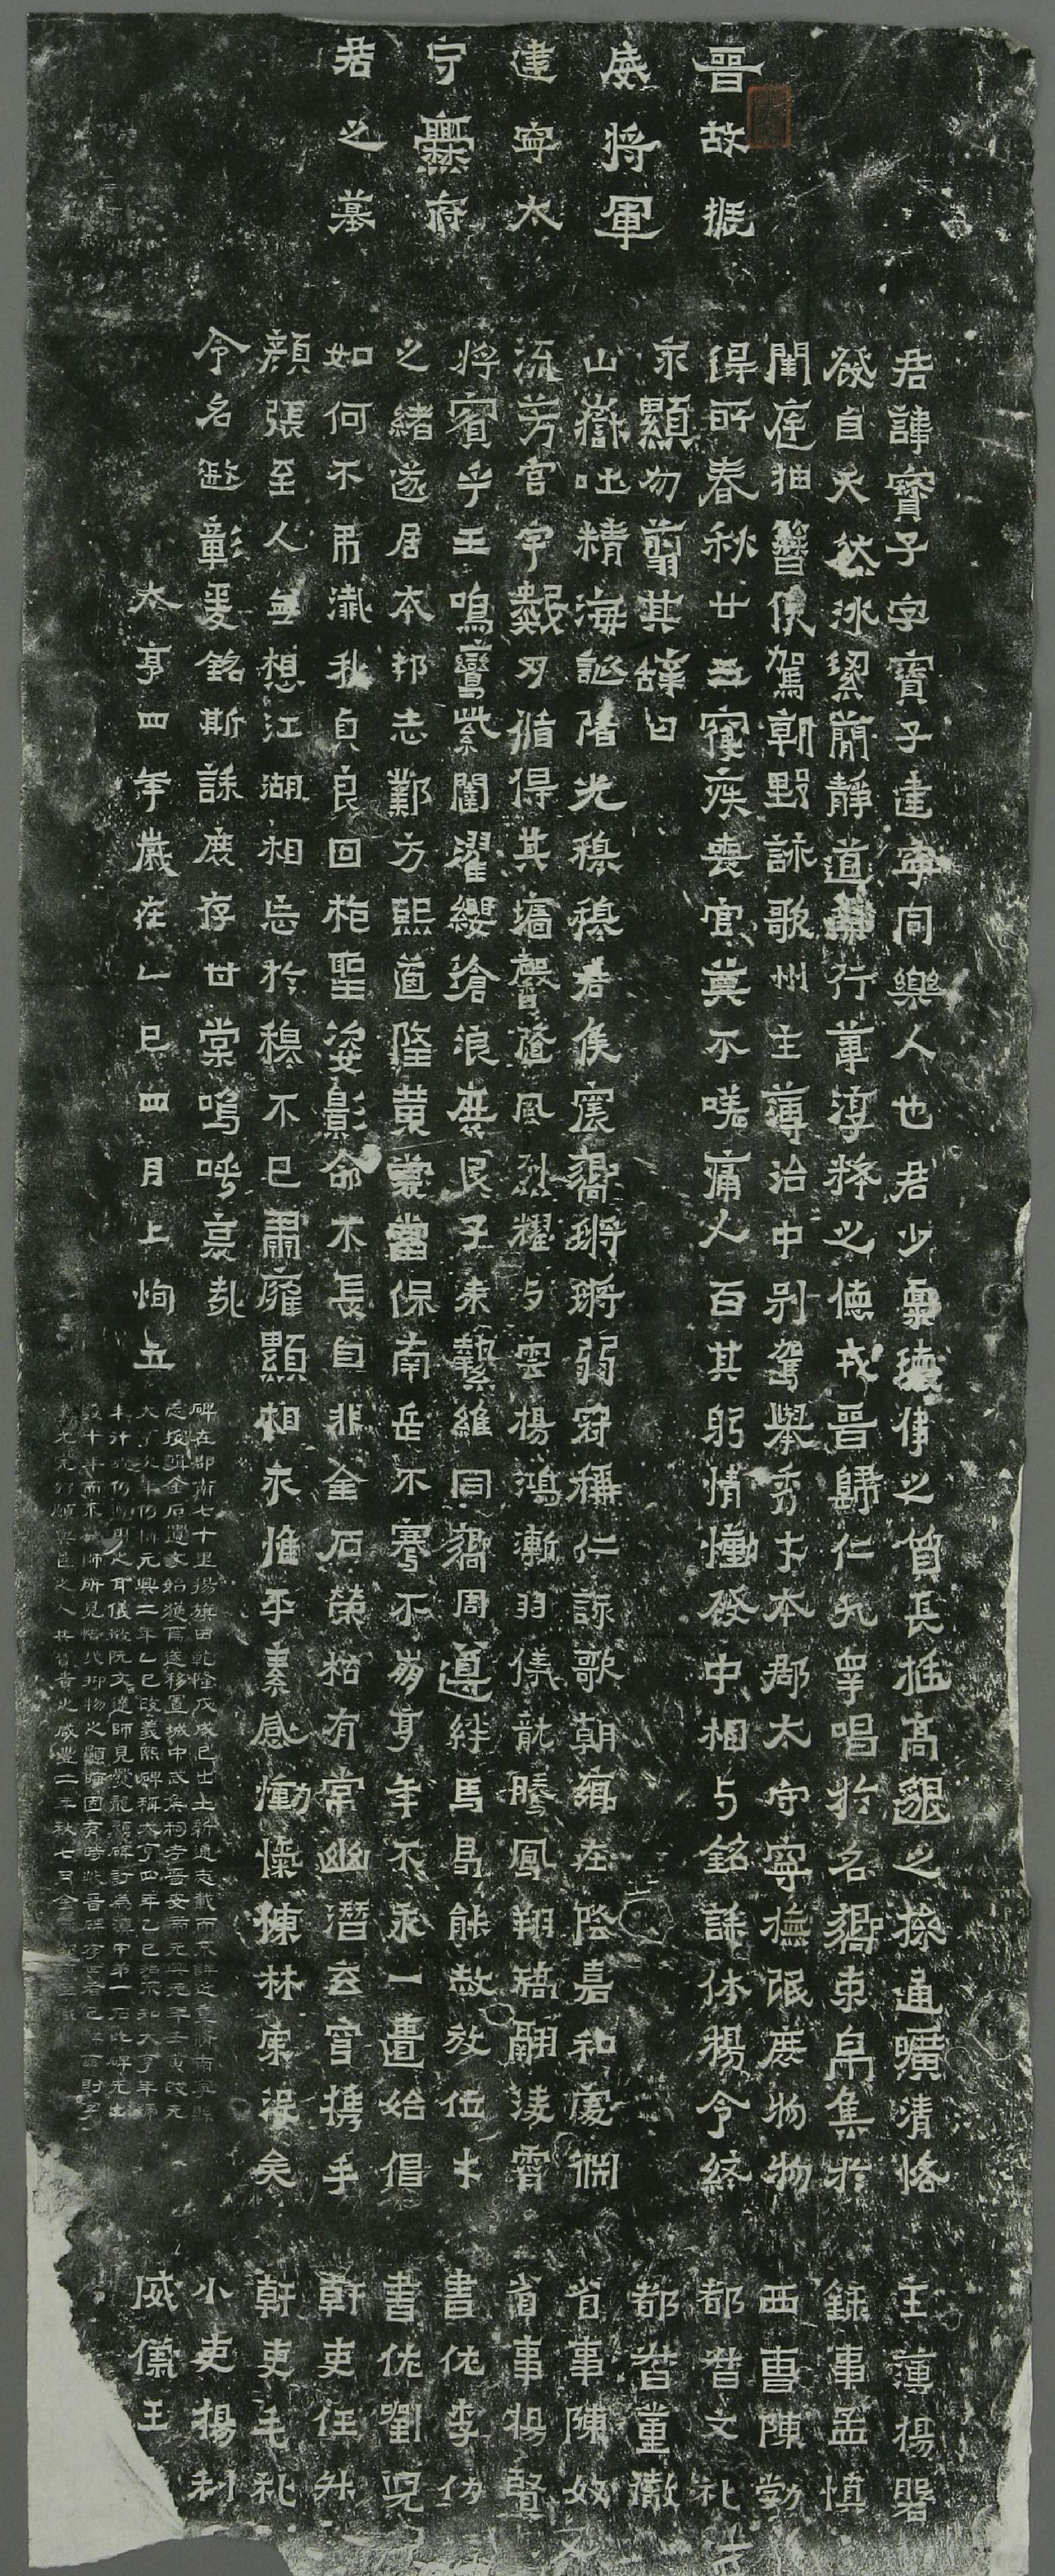 晉故振
威將軍
建寧太
守爨府
君之墓
君諱寶子字寶子建寧同樂人也君少稟瓌偉之質長挺高邈之操通曠清恪
發自天然冰絜簡靜道兼行葦淳粹之德戎晉歸仁九皋唱於名嚮束帛集於
閨庭抽簪俟駕朝野詠歌州主簿治中別駕舉秀才本郡太守寧撫氓庶物物
得所春秋廿五寑疾喪官莫不嗟痛人百其躬情慟發中相与銘誄休揚令終
永顯勿翦其辭曰
山嶽吐精海誕降光穆穆君侯震嚮鏘鏘弱冠稱仁詠歌朝鄉在陰嘉和處淵
流芳宮宇數刃循得其墻馨隨風烈耀与雲揚鴻漸羽儀龍騰鳳翔矯翮淩霄
將賓乎王鳴鸞紫闥濯纓滄浪庶民子來縶維同嚮周遵絆馬曷能赦放位才
之緒遂居本邦志鄴方熙道隆黃裳當保南岳不騫不崩享年不永一匱始倡
如何不弔殲我貞良回抱聖姿影命不長自非金石榮枯有常幽潛玄穹攜手
顏張至人無想江湖相忘於穆不已肅雍顯相永惟平素感慟忾慷林宗沒矣
令名遐彰爰銘斯誄庶存甘棠嗚呼哀哉
太亨四年歲在乙巳四月上恂立
碑在郡南七十里揚旗田乾隆戊戌已出土新通志載而不詳近重修南寧縣
志搜輯金石遺文始獲焉遂移置城中武侯祠考晉安帝元興元年壬寅改元
大亨次年仍稱元興二年乙巳改義熙碑稱大亨四年乙巳殆不知大亨年號
未行故仍遵用之耳儀徵阮文達師見爨龍顏碑訂為滇中第一石此碑先出
數十年而不為師所見惜哉抑物之顯晦固有時歟晉碑存世者已鮮茲則字
畫尤完好願與邑之人共寶貴之咸豐二年秋七月金陵
主簿楊磐
錄事孟慎
西曹陳勃
都督文礼
都督董徹
省事陳奴
省事楊賢
書佐李仂
書佐劉兒
幹吏任升
幹吏毛礼
小吏楊利
威儀王